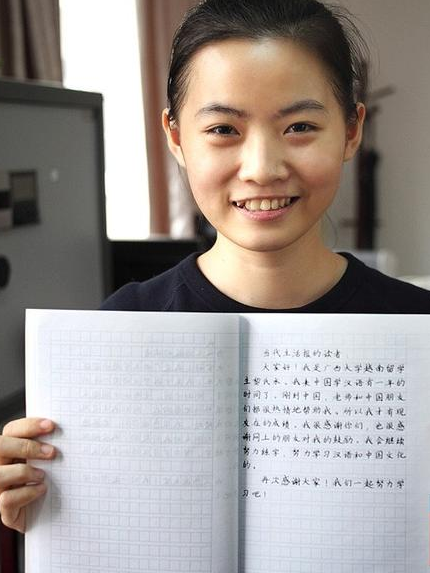 当代生活报的读者
大家好！我是广西大学越南留学
生黎，我来中国学汉语有一年的
时间了，刚到中国，老师和中国朋友
们都很热情地帮助我，所以我才有现
在的成绩，我很感谢你们，也很感
谢网上的朋友对我的鼓励，我会继续
努力练字，努力学习汉语和中国文化
的。
再次感谢大家！我们一起努力学
习吧！